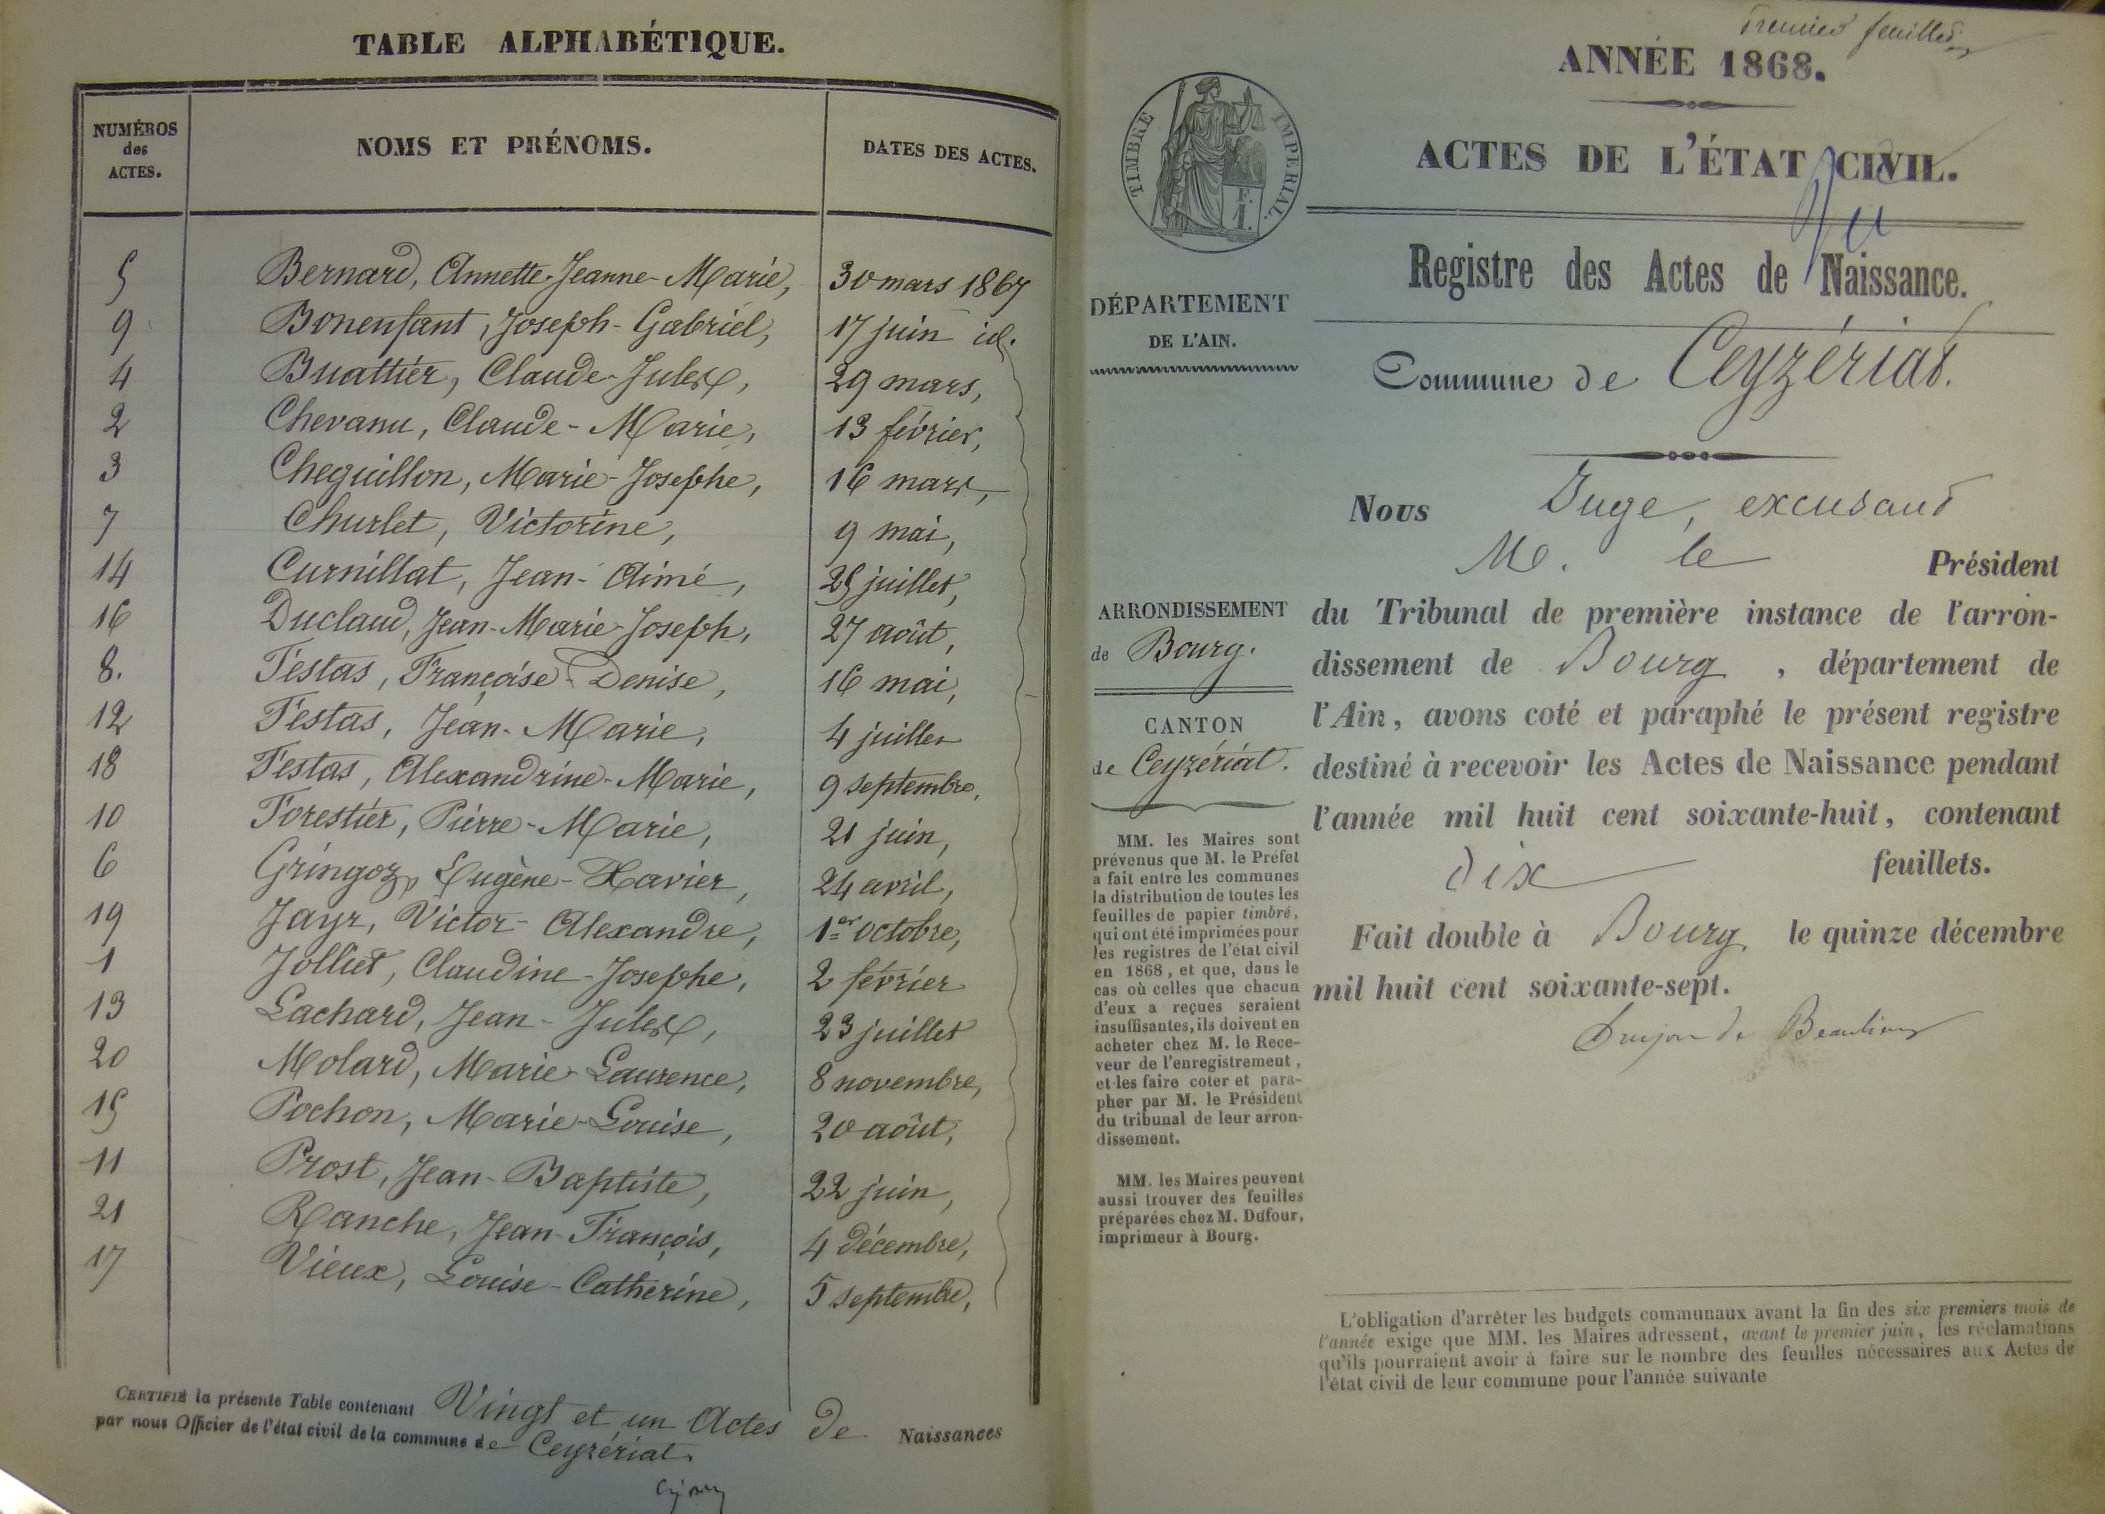 TABLE ALPHABÉTIQUE.
NUMÉROS des ACTES.
NOMS ET PRÉNOMS.
DATES DES ACTES.
5 Bernard, Annette-Jeanne-Marie, 30 mars 1867
9 Bonenfant, Joseph-Gabriel, 17 juin id.
4 Buattier, Claude-Jules, 29 mars,
2 Chevanu, Claude-Marie, 13 février,
3 Cheguillon, Marie-Josephe, 16 mars,
7 Churlet, Victorine, 9 mai,
14 Curnillat, Jean-Aimé, 25 juillet,
16 Duclaud, Jean-Marie-Joseph, 27 août,
8. Festas, Françoise-Denise, 16 mai,
12 Festas, Jean-Marie, 4 juillet
18 Festas, Alexandrine-Marie, 9 septembre,
10 Forestier, Pierre-Marie, 21 juin,
6 Gringoz, Eugène-Xavier, 24 avril,
19 Jayr, Victor-Alexandre, 1er octobre,
1 Jolliet, Claudine-Josephe, 2 février
13 Lachard, Jean-Jules, 23 juillet
20 Molard, Marie-Laurence, 8 novembre,
15 Pochon, Marie-Louise, 20 août,
11 Prost, Jean-Baptiste, 22 juin,
21 Ranche, Jean-François, 4 décembre,
17 Vieux, Louise-Catherine, 5 septembre,
CERTIFIÉ la présente Table contenant Vingt et un Actes de Naissances
par nous Officier de l'état civil de la commune de Ceyzériat.
Premier feuillet
ANNÉE 1868.
TIMBRE IMPÉRIAL.
F.
1.
ACTES DE L'ÉTAT CIVIL.
Vu
Registre des Actes de Naissance.
DÉPARTEMENT
DE L'AIN.
Commune de Ceyzériat.
ARRONDISSEMENT
de Bourg.
CANTON
de Ceyzériat.
MM. les Maires sont
prévenus que M. le Préfet
a fait entre les communes
la distribution de toutes les
feuilles de papier timbré,
qui ont été imprimées pour
les registres de l'état civil
en 1868, et que, dans le
cas où celles que chacun
d'eux a reçues seraient
insuffisantes, ils doivent en
acheter chez M. le Rece-
veur de l'enregistrement,
et les faire coter et para-
pher par M. le Président
du tribunal de leur arron-
dissement.
MM. les Maires peuvent
aussi trouver des feuilles
préparées chez M. Dufour,
imprimeur à Bourg.
Nous Juge, excusant
M. le Président
du Tribunal de première instance de l'arron-
dissement de Bourg, département de
l'Ain, avons coté et paraphé le présent registre
destiné à recevoir les Actes de Naissance pendant
l'année mil huit cent soixante-huit, contenant
dix feuillets.
Fait double à Bourg, le quinze décembre
mil huit cent soixante-sept.
de Beaulieu
L'obligation d'arrêter les budgets communaux avant la fin des six premiers mois de
l'année exige que MM. les Maires adressent, avant le premier juin, les réclamations
qu'ils pourraient avoir à faire sur le nombre des feuilles nécessaires aux Actes de
l'état civil de leur commune pour l'année suivante